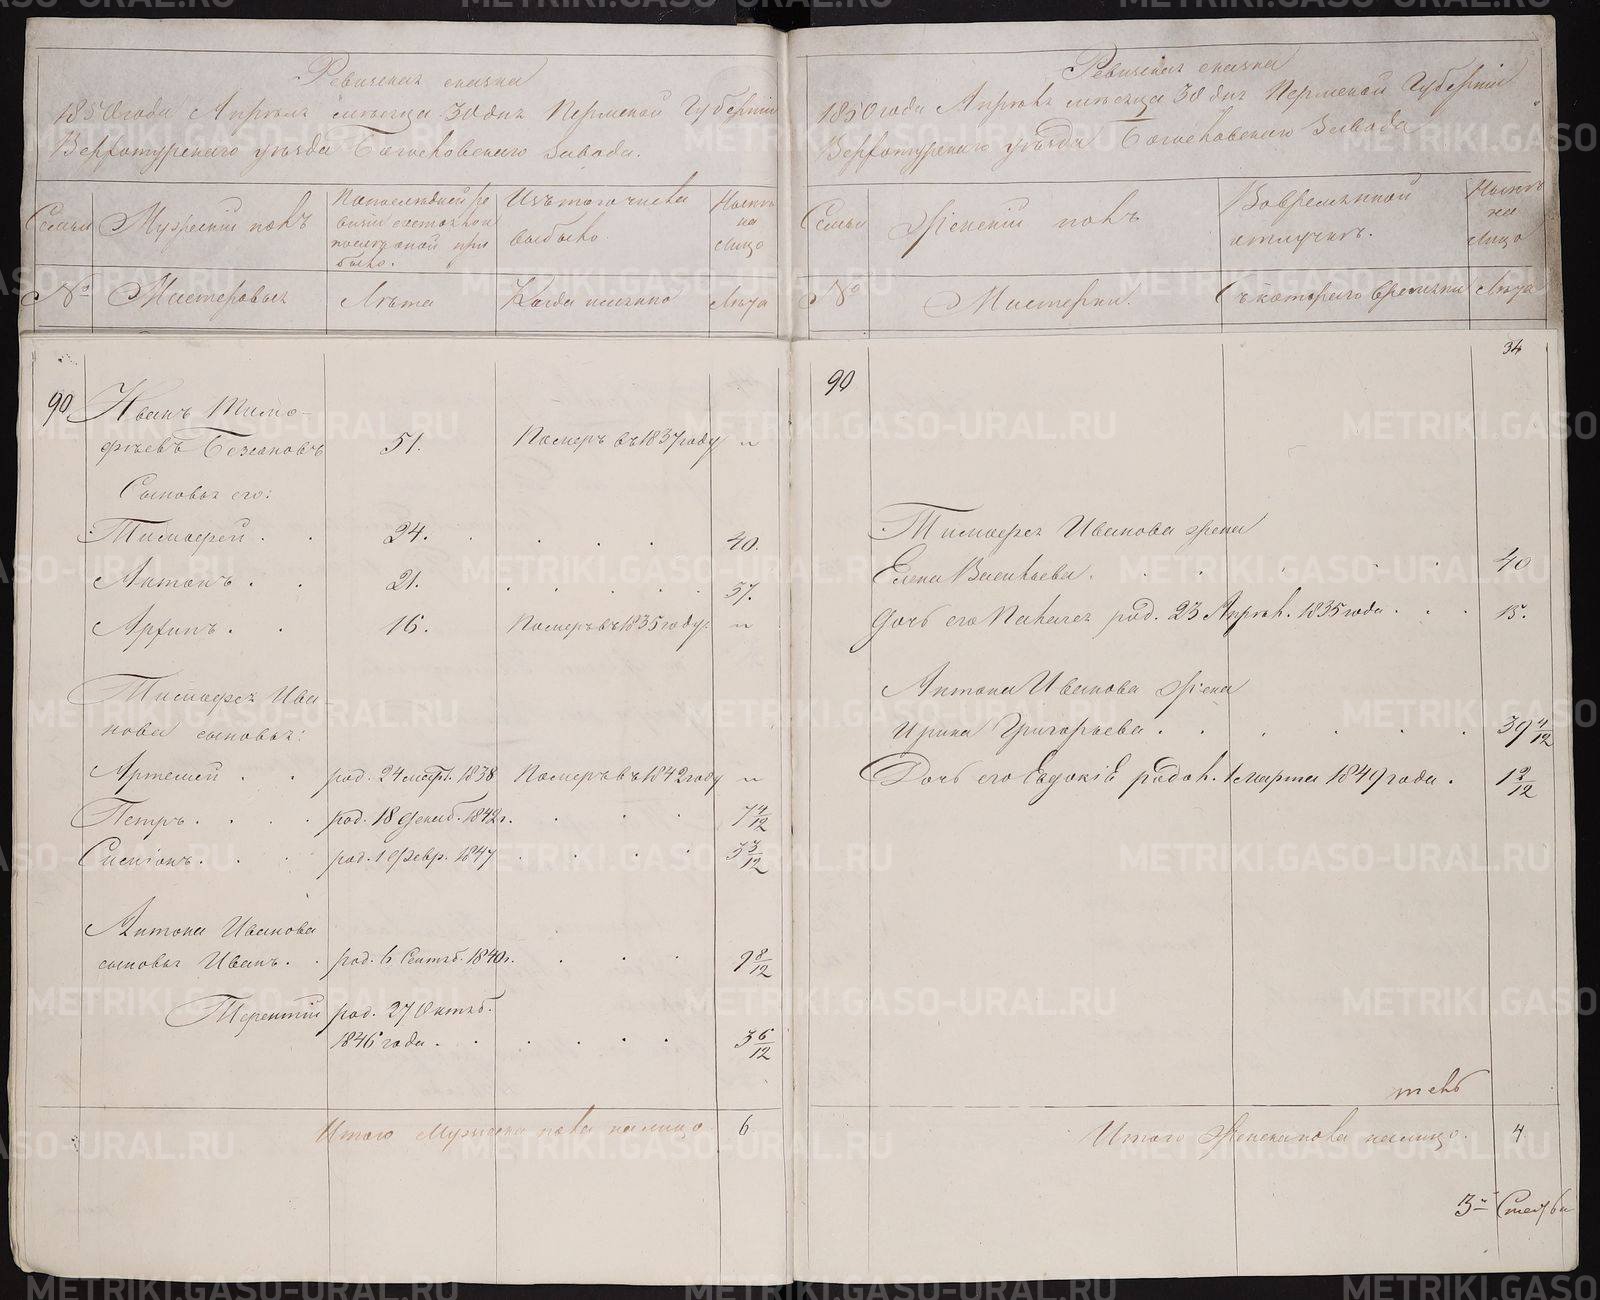 Ревизская сказка
1850 года Апреля месяца 30 дня Пермской Губернии
Верхотурскаго уезда Завода.
Семьи
Мужескій полъ
По последней ре
визіи состояло
и после оной при
было.
Изъ того числа
выбыло.
Ныне
на
лицо
№
Мастеровыя
Лета
Когда именно
Лета
90
Иванъ Тимо-
феевъ
51.
Померъ въ 1837 году
"
Сыновья его:
Тимофей . . 24. 40.
Антонъ . . 21. 37.
Архипъ . . 16. Померъ въ 1835 году "
Тимофея Ива
нова сыновья:
Артемей . . род. 24 март. 1838 Померъ въ 1842 году "
Петръ . . . . род. 18 декаб. 1842 г. 7 4/12
Симіонъ . . . род. 1 Февр. 1847 3 3/12
Антона Иванова
сыновья Иванъ . . род. 6 Сентяб. 1840 г. 9 8/12
Терентій род. 27 Октяб.
1846 года . 3 6/12
Итого Мужеска пола налицо 6
Ревизская сказка
1850 года Апрель месяца 30 дня Пермской Губерніи
Верхотурскаго уезда Завода
Семьи
Женскій полъ
Во временной
отлучке.
Ныне
на
лицо
№
Мастерки.
Съ котораго времени
Лета
34
90
Тимофея Иванова жена
Елена Васильева. 40
дочь его Палагея род. 23 Апрел. 1835 года . . . 15.
Антона Иванова жена
Ирина Григорьева . . . 39 4/12
Дочь его Евдокія родол. 1 марта 1849 года . 1 2/12
Итого Женска пола налицо. 4
METRIKI.GASO-URAL.RU